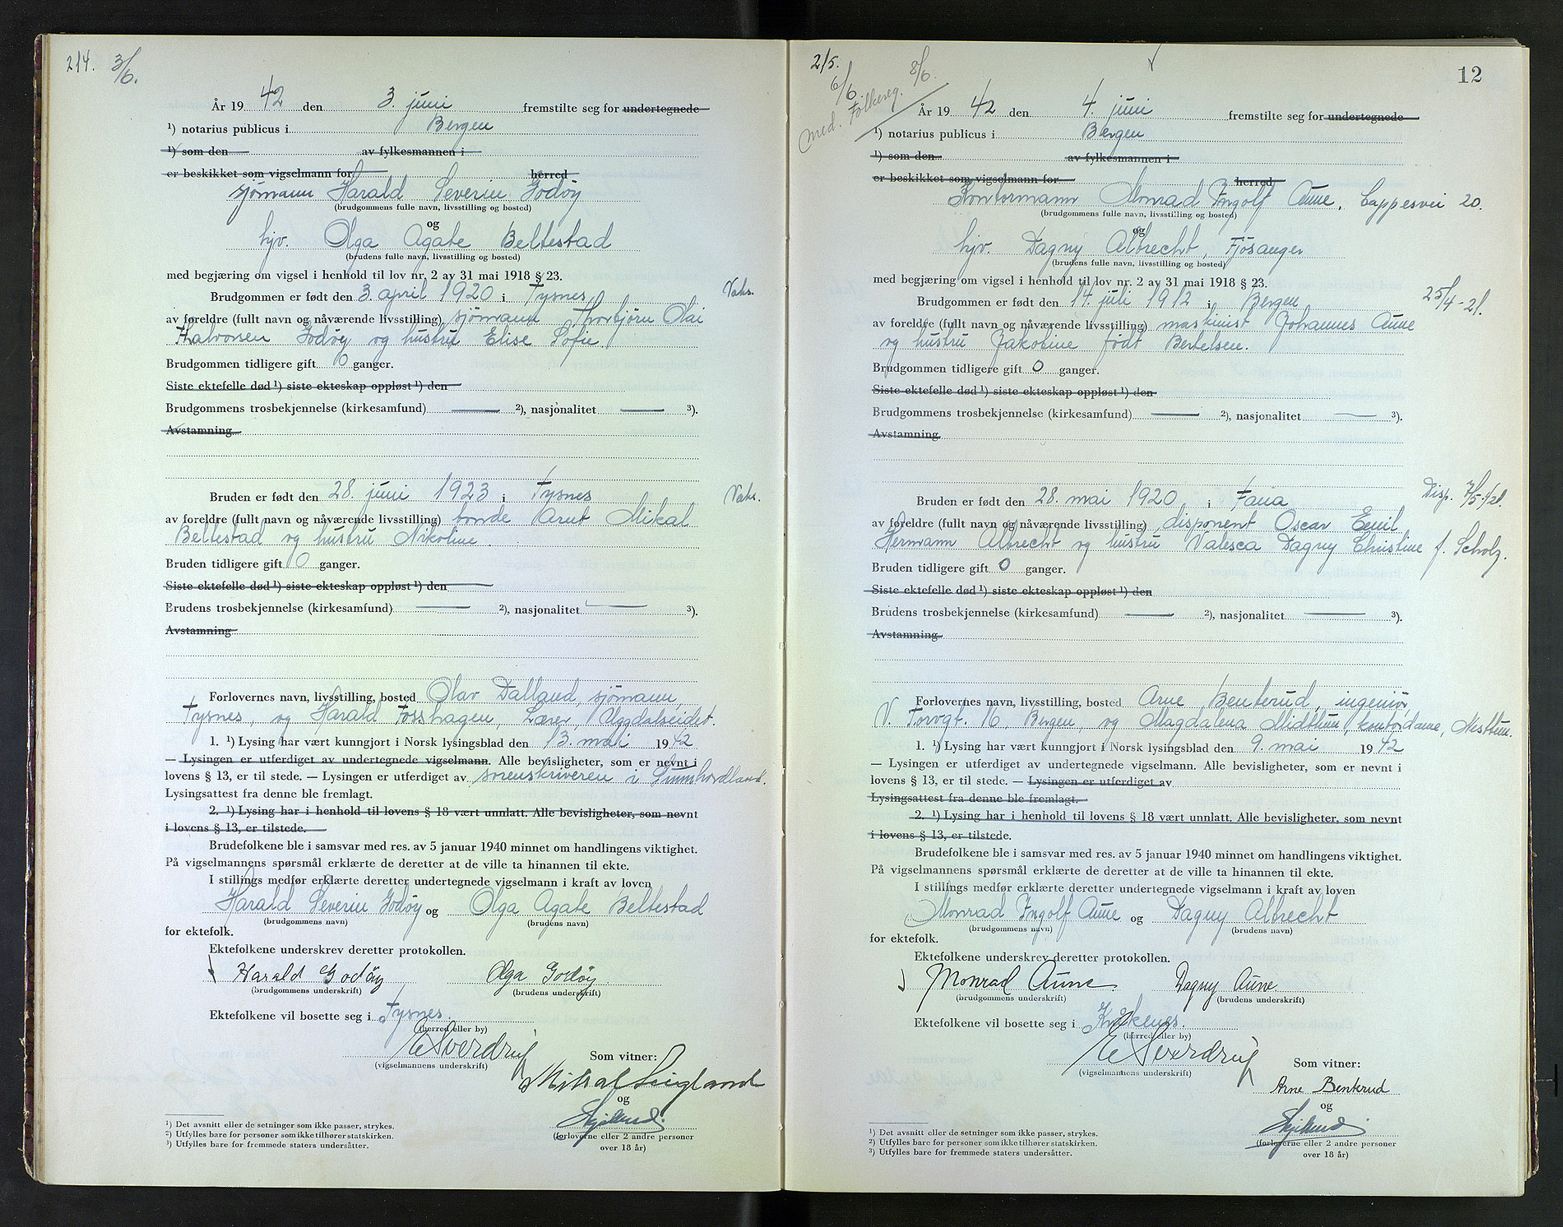 214. 3/6.
År 19 42 den 3. juni fremstilte seg for undertegnede
¹) notarius publicus i Bergen
¹) som den av fylkesmannen i
er beskikket som vigselmann for herred
sjömann Harald Severin Godöy
(brudgommens fulle navn, livsstilling og bosted)
og
hjv. Olga Agate Beltestad
(brudens fulle navn, livsstilling og bosted)
med begjæring om vigsel i henhold til lov nr. 2 av 31 mai 1918 § 23.
Brudgommen er født den 3. april 1920 i Tysnes Vaks.
av foreldre (fullt navn og nåværende livsstilling) sjömann Thorbjörn Olai
Halvorsen Godöy og hustru Elise Sofie.
Brudgommen tidligere gift 0 ganger.
Siste ektefelle død ¹) siste ekteskap oppløst ¹) den
Brudgommens trosbekjennelse (kirkesamfund) — ²), nasjonalitet — ³).
Avstamning
Bruden er født den 28. juni 1923 i Tysnes Vaks.
av foreldre (fullt navn og nåværende livsstilling) bonde Knut Mikal
Beltestad og hustru Nikoline.
Bruden tidligere gift 0 ganger.
Siste ektefelle død ¹) siste ekteskap oppløst ¹) den
Brudens trosbekjennelse (kirkesamfund) — ²), nasjonalitet — ³).
Avstamning
Forlovernes navn, livsstilling, bosted Olav Dalland, sjömann,
Tysnes, og Harald Fosshagen, Lærer, Uggdalseidet.
1. ¹) Lysing har vært kunngjort i Norsk lysingsblad den 13. mai 1942
— Lysingen er utferdiget av undertegnede vigselmann. Alle bevisligheter, som er nevnt i
lovens § 13, er til stede. — Lysingen er utferdiget av sorenskriveren i Sunnhordland.
Lysingsattest fra denne ble fremlagt.
2. ¹) Lysing har i henhold til lovens § 18 vært unnlatt. Alle bevisligheter, som nevnt
i lovens § 13, er tilstede.
Brudefolkene ble i samsvar med res. av 5 januar 1940 minnet om handlingens viktighet.
På vigselmannens spørsmål erklærte de deretter at de ville ta hinannen til ekte.
I stillings medfør erklærte deretter undertegnede vigselmann i kraft av loven
Harald Severin Godöy og Olga Agate Beltestad
(brudgommens navn) (brudens navn)
for ektefolk.
Ektefolkene underskrev deretter protokollen.
Harald Godöy Olga Godöy.
(brudgommens underskrift) (brudens underskrift)
Ektefolkene vil bosette seg i Tysnes.
(herred eller by)
E Sverdrup
(vigselmannens underskrift)
Som vitner:
og
(forloverne eller 2 andre personer
over 18 år)
¹) Det avsnitt eller de setninger som ikke passer, strykes.
²) Utfylles bare for personer som ikke tilhører statskirken.
³) Utfylles bare for fremmede staters undersåtter.
215. 6/6 med. Folkereg. 8/6.
12
År 19 42 den 4. juni fremstilte seg for undertegnede
¹) notarius publicus i Bergen
¹) som den av fylkesmannen i
er beskikket som vigselmann for herred
Kontormann Monrad Ingolf Aune, Cappesvei 20.
(brudgommens fulle navn, livsstilling og bosted)
og
hjv. Dagny Albrecht, Fjösanger
(brudens fulle navn, livsstilling og bosted)
med begjæring om vigsel i henhold til lov nr. 2 av 31 mai 1918 § 23.
Brudgommen er født den 14. juli 1912 i Bergen 25/4-21.
av foreldre (fullt navn og nåværende livsstilling) maskinist Johannes Aune
og hustru Jakobine født Bertelsen.
Brudgommen tidligere gift 0 ganger.
Siste ektefelle død ¹) siste ekteskap oppløst ¹) den
Brudgommens trosbekjennelse (kirkesamfund) — ²), nasjonalitet — ³).
Avstamning
Bruden er født den 28. mai 1920 i Fana Disp.
av foreldre (fullt navn og nåværende livsstilling) disponent Oscar Emil
Hermann Albrecht og hustru Valesca Dagny Christine f. Scholz.
Bruden tidligere gift 0 ganger.
Siste ektefelle død ¹) siste ekteskap oppløst ¹) den
Brudens trosbekjennelse (kirkesamfund) — ²), nasjonalitet — ³).
Avstamning
Forlovernes navn, livsstilling, bosted Arne Benterud, ingeniör
V. Torvgt. 16, Bergen, og Magdalena Midttun, kontordame, Nesttun.
1. ¹) Lysing har vært kunngjort i Norsk lysingsblad den 9. mai 1942
— Lysingen er utferdiget av undertegnede vigselmann. Alle bevisligheter, som er nevnt i
lovens § 13, er til stede. — Lysingen er utferdiget av
Lysingsattest fra denne ble fremlagt.
2. ¹) Lysing har i henhold til lovens § 18 vært unnlatt. Alle bevisligheter, som nevnt
i lovens § 13, er tilstede.
Brudefolkene ble i samsvar med res. av 5 januar 1940 minnet om handlingens viktighet.
På vigselmannens spørsmål erklærte de deretter at de ville ta hinannen til ekte.
I stillings medfør erklærte deretter undertegnede vigselmann i kraft av loven
Monrad Ingolf Aune og Dagny Albrecht
(brudgommens navn) (brudens navn)
for ektefolk.
Ektefolkene underskrev deretter protokollen.
Monrad Aune. Dagny Aune.
(brudgommens underskrift) (brudens underskrift)
Ektefolkene vil bosette seg i
(herred eller by)
E Sverdrup
(vigselmannens underskrift)
Som vitner:
Arne Benterud
og
(forloverne eller 2 andre personer
over 18 år)
¹) Det avsnitt eller de setninger som ikke passer, strykes.
²) Utfylles bare for personer som ikke tilhører statskirken.
³) Utfylles bare for fremmede staters undersåtter.